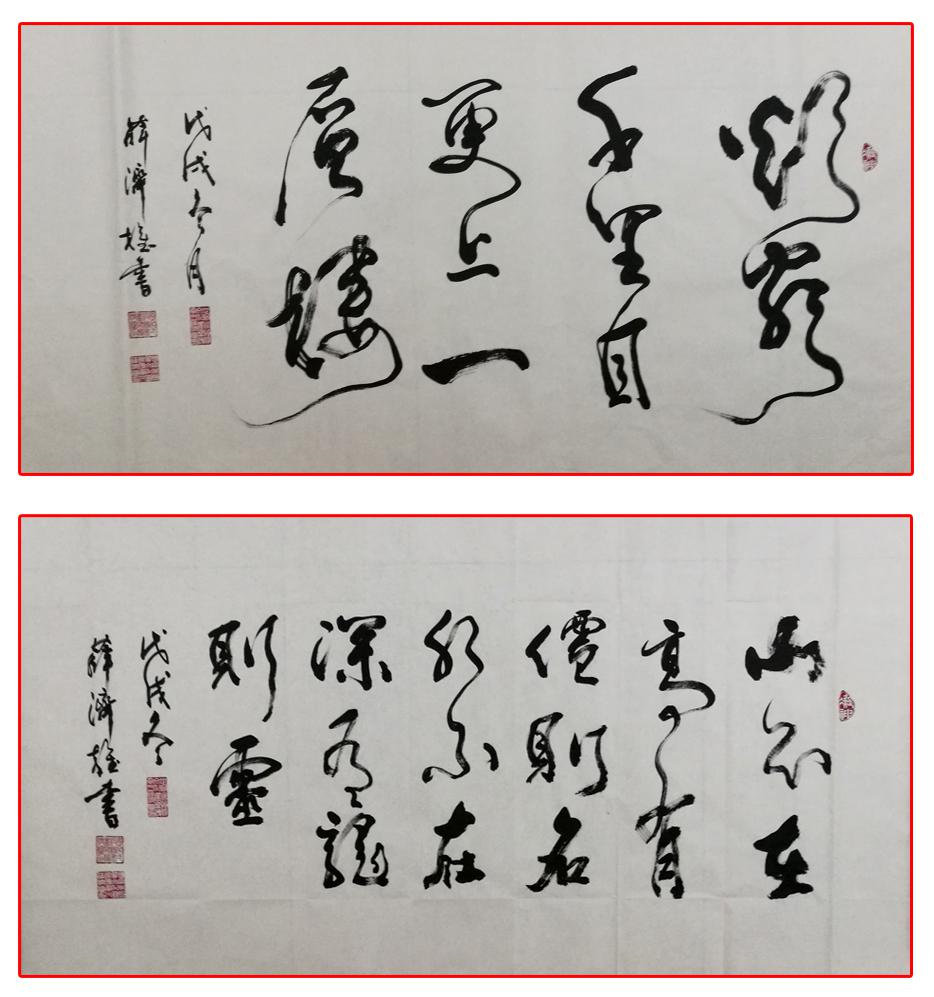 欲窮
千里目
更上一
層樓
戊戌冬月
薛濟雄書
山不在
高有
僊則名
水不在
深有龍
則靈
戊戌冬
薛濟雄書